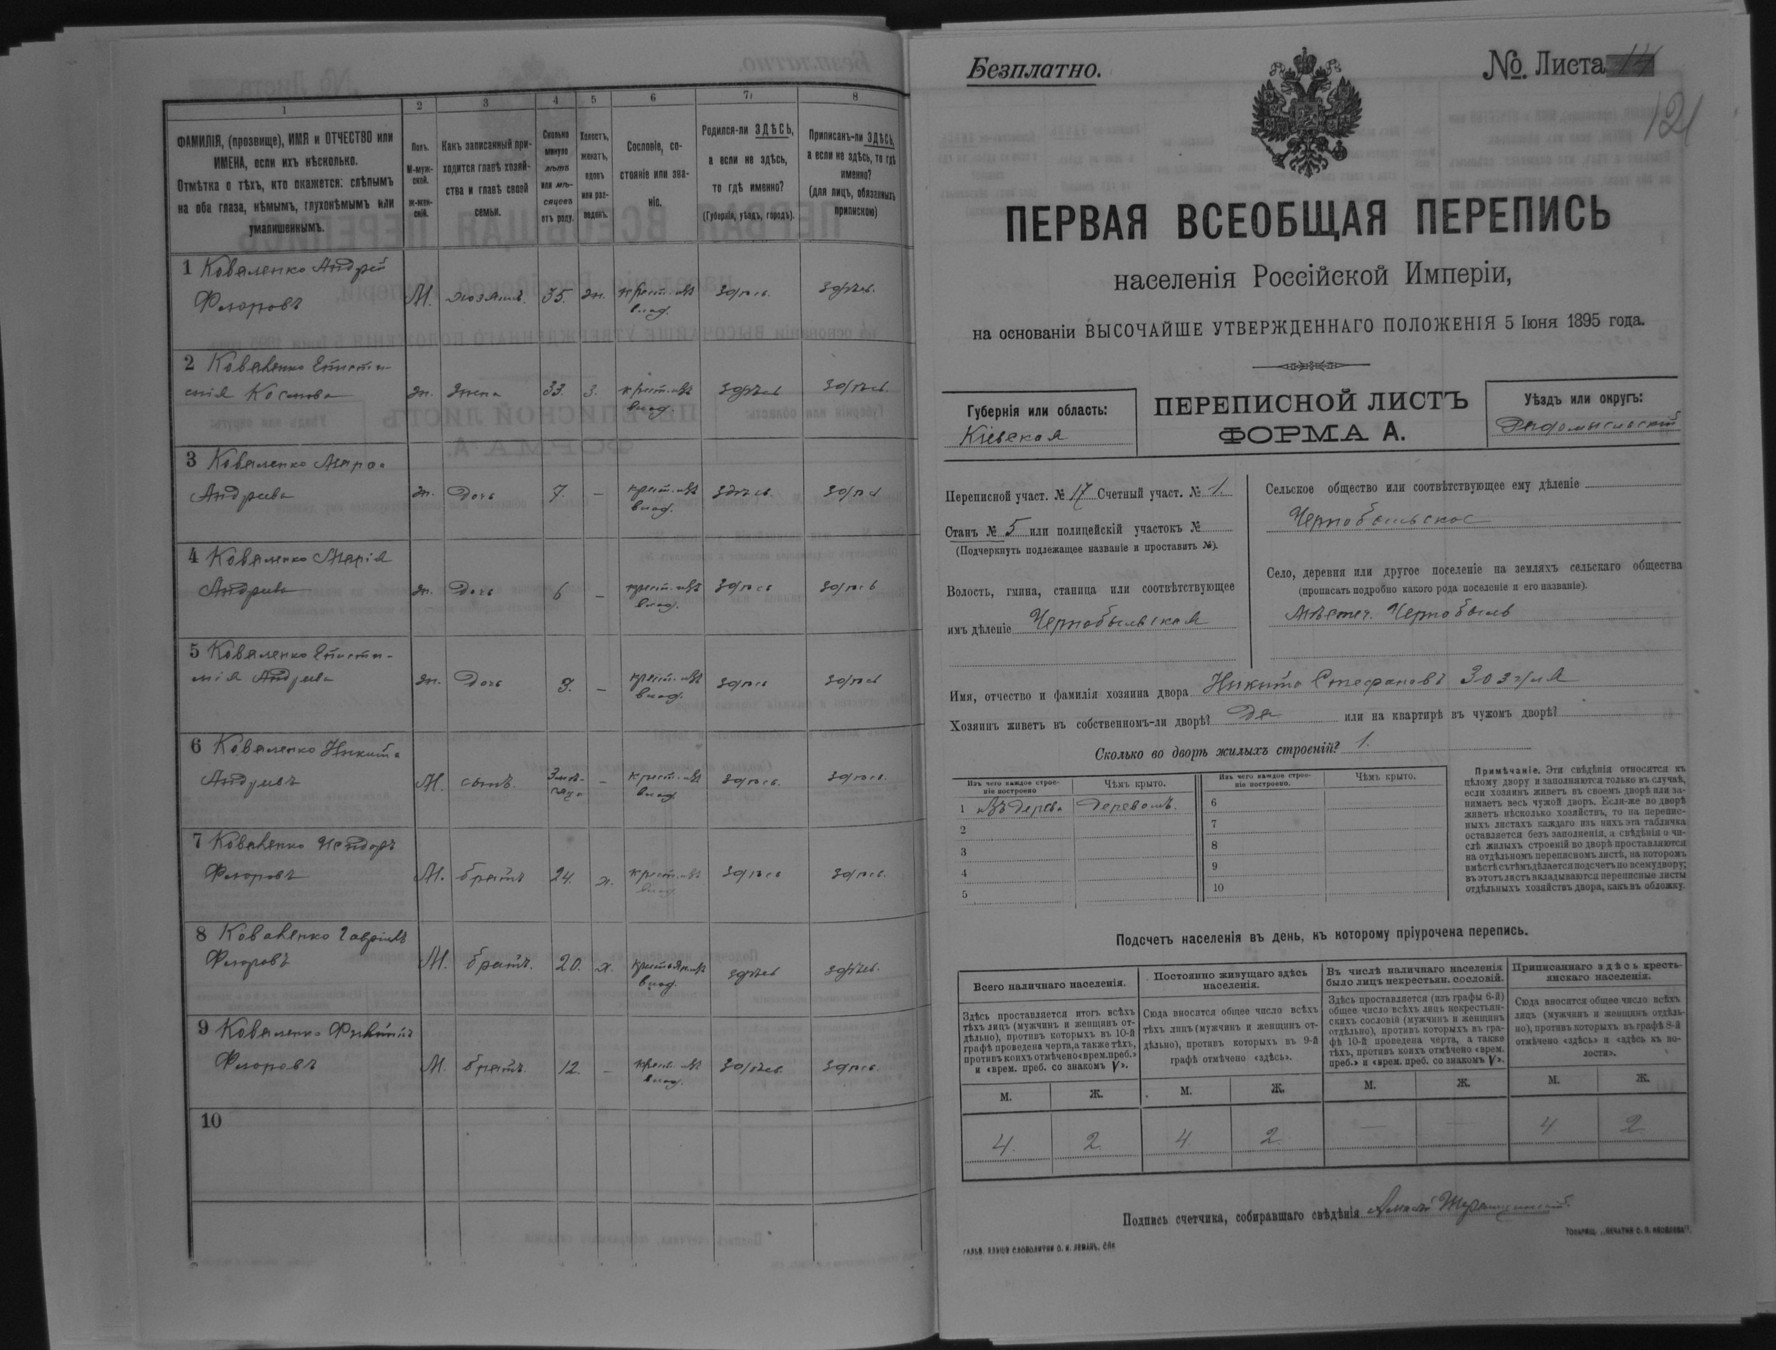 1
2
3
4
5
6
7
8
ФАМИЛІЯ, (прозвище), ИМЯ и ОТЧЕСТВО или
ИМЕНА, если ихъ нѣсколько.
Отмѣтка о тѣхъ, кто окажется: слѣпымъ
на оба глаза, нѣмымъ, глухонѣмымъ или
умалишеннымъ.
Полъ.
М-муж-
ской.
ж-жен-
скій.
Какъ записанный при-
ходится главѣ хозяй-
ства и главѣ своей
семьи.
Сколько
минуло
лѣтъ
или мѣ-
сяцевъ
отъ роду.
Холостъ,
женатъ,
вдовъ
или раз-
веденъ.
Сословіе, со-
стояніе или зва-
ніе.
Родился-ли ЗДѢСЬ,
а если не здѣсь,
то гдѣ именно?
(Губернія, уѣздъ, городъ).
Приписанъ-ли ЗДѢСЬ,
а если не здѣсь, то гдѣ
именно?
(для лицъ, обязанныхъ
припискою)
1 Коваленко Андрей
Флоровъ М. хозяинъ. 35. жн. крест. изъ влад. здѣсь. здѣсь.
2 Коваленко Еписта-
мія Космова жн. жена 33. з. крест. изъ влад. здѣсь здѣсь.
3 Коваленко
Андреева жн. Дочь 7. – крест. изъ влад. здѣсь. здѣсь
4 Коваленко Марія
Андреева жн. Дочь 6 – крест. изъ влад. здѣсь здѣсь
5 Коваленко Еписти-
мія Андреева жн. Дочь – крест. изъ влад. здѣсь здѣсь
6 Коваленко Никита
Андреевъ М. сынъ. – крест. изъ влад. здѣсь. здѣсь.
7 Коваленко
Флоровъ М. братъ 24. х. крест. изъ влад. здѣсь здѣсь.
8 Коваленко Гавріилъ
Флоровъ М. братъ. 20. х. крестьян. изъ влад. здѣсь здѣсь.
9 Коваленко
Флоровъ М. братъ. 12. – крест. изъ влад. здѣсь здѣсь.
10
Безплатно.
№ Листа
121
ПЕРВАЯ ВСЕОБЩАЯ ПЕРЕПИСЬ
населенія Россійской Имперіи,
на основаніи ВЫСОЧАЙШЕ УТВЕРЖДЕННАГО ПОЛОЖЕНІЯ 5 Іюня 1895 года.
Губернія или область:
Кіевская
ПЕРЕПИСНОЙ ЛИСТЪ
ФОРМА А.
Уѣздъ или округъ:
Радомысльскій
Переписной участ. № 17 Счетный участ. № 1.
Станъ № 5 или полицейскій участокъ №
(Подчеркнуть подлежащее названіе и проставить №).
Волость, гмина, станица или соотвѣтствующее
имъ дѣленіе Чернобыльская
Сельское общество или соотвѣтствующее ему дѣленіе
Чернобыльское
Село, деревня или другое поселеніе на земляхъ сельскаго общества
(прописать подробно какого рода поселеніе и его названіе).
Мѣстеч. Чернобыль
Имя, отчество и фамилія хозяина двора Никита Стефановъ
Хозяинъ живетъ въ собственномъ-ли дворѣ? Да или на квартирѣ въ чужомъ дворѣ?
Сколько во дворѣ жилыхъ строеній? 1.
Изъ чего каждое строе-
ніе построено
Чѣмъ крыто.
Изъ чего каждое строе-
ніе построено.
Чѣмъ крыто.
1 изъ дерева Деревомъ.
2
3
4
5
6
7
8
9
10
Примѣчаніе. Эти свѣдѣнія относятся къ
цѣлому двору и заполняются только въ случаѣ,
если хозяинъ живетъ въ своемъ дворѣ или за-
нимаетъ весь чужой дворъ. Если-же во дворѣ
живетъ нѣсколько хозяйствъ, то на перепис-
ныхъ листахъ каждаго изъ нихъ эта табличка
оставляется безъ заполненія, а свѣдѣнія о чи-
слѣ жилыхъ строеній во дворѣ проставляются
на отдѣльномъ переписномъ листѣ, на которомъ
вмѣстѣ съ тѣмъ дѣлается подсчетъ по всему двору;
въ этотъ листъ вкладываются переписные листы
отдѣльныхъ хозяйствъ двора, какъ въ обложку.
Подсчетъ населенія въ день, къ которому пріурочена перепись.
Всего наличнаго населенія.
Здѣсь проставляется итогъ всѣхъ
тѣхъ лицъ (мужчинъ и женщинъ от-
дѣльно), противъ которыхъ въ 10-й
графѣ проведена черта, а также тѣхъ,
противъ коихъ отмѣчено «врем. преб.»
и «врем. преб. со знакомъ V».
Постоянно живущаго здѣсь
населенія.
Сюда вносится общее число всѣхъ
тѣхъ лицъ (мужчинъ и женщинъ от-
дѣльно), противъ которыхъ въ 9-й
графѣ отмѣчено «здѣсь».
Въ числѣ наличнаго населенія
было лицъ некрестьян. сословій.
Здѣсь проставляется (изъ графы 6-й)
общее число всѣхъ лицъ некрестьян-
скихъ сословій (мужчинъ и женщинъ
отдѣльно), противъ которыхъ въ гра-
фѣ 10-й проведена черта, а также
тѣхъ, противъ коихъ отмѣчено «врем.
преб.» и «врем. преб. со знакомъ V».
Приписаннаго здѣсь кресть-
янскаго населенія.
Сюда вносится общее число всѣхъ
лицъ (мужчинъ и женщинъ отдѣль-
но), противъ которыхъ въ графѣ 8-й
отмѣчено «здѣсь» и «здѣсь въ во-
лости».
М. Ж. М. Ж. М. Ж. М. Ж.
4. 2. 4 2 — — 4 2
Подпись счетчика, собиравшаго свѣдѣнія